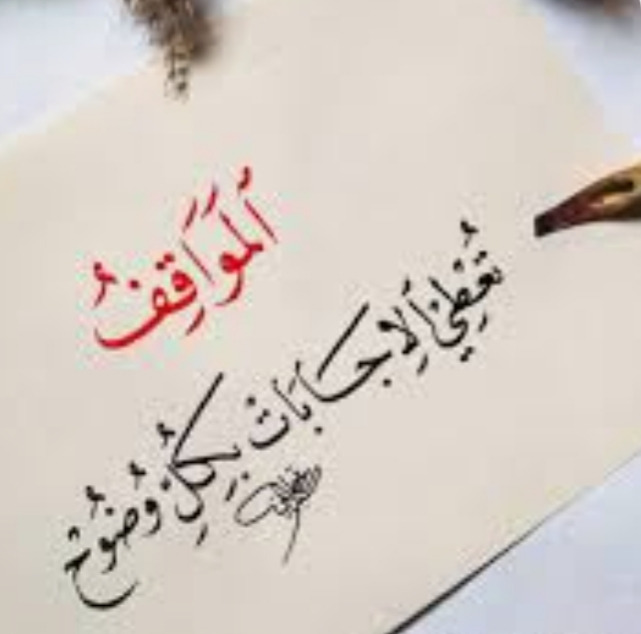 المَوَاقِفُ
تُعْطِي الإجَابَاتْ بِكُلِّ وُضُوح